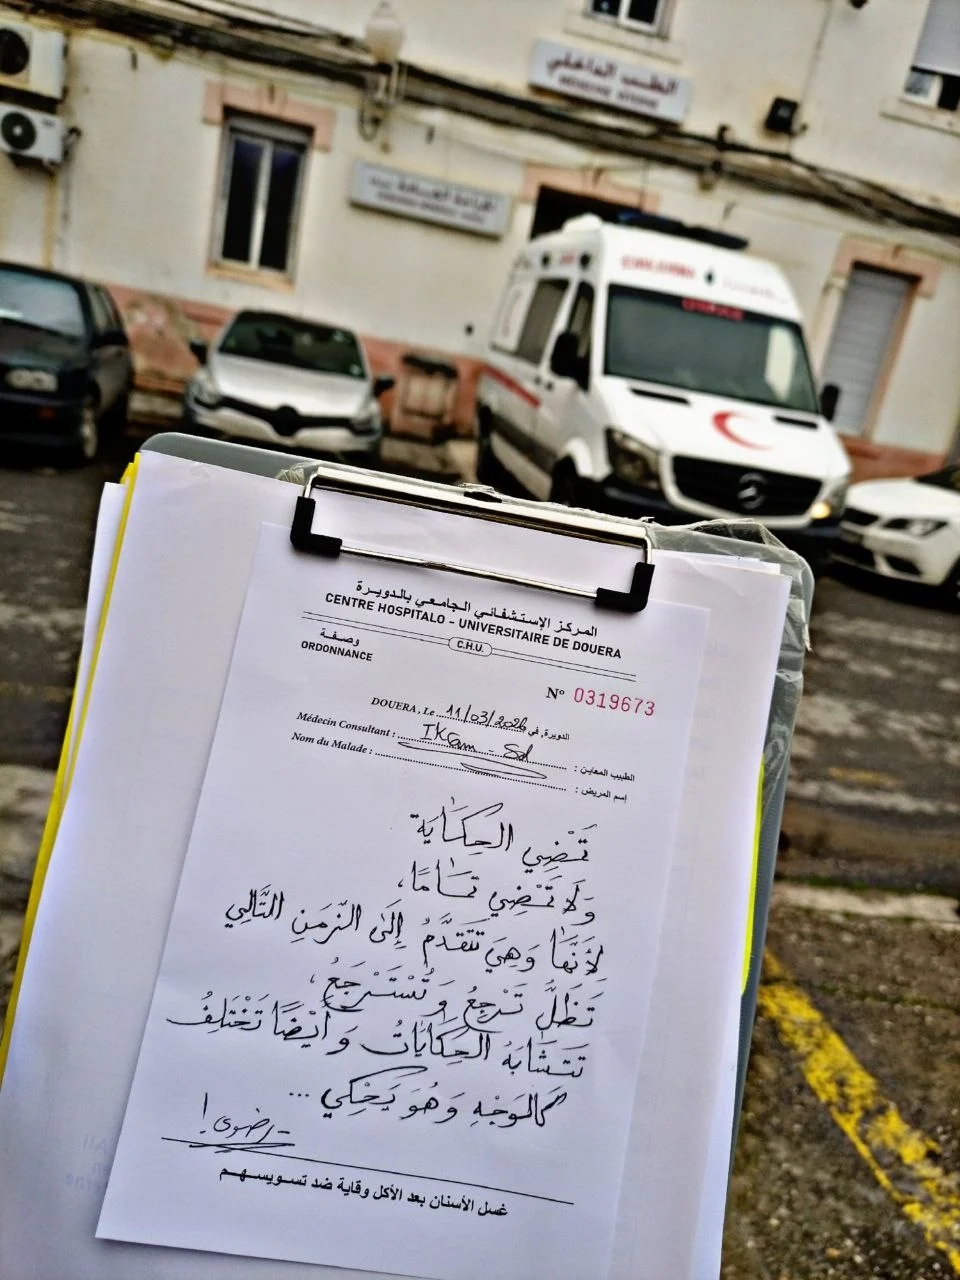 الطب الداخلي
MÉDECINE INTERNE
المركز الإستشفائي الجامعي بالدويرة
CENTRE HOSPITALO - UNIVERSITAIRE DE DOUERA
C.H.U.
وصفة
ORDONNANCE
N° 0319673
DOUERA, Le 11/03/2026 الدويرة, في
Médecin Consultant : Ikram - Sd الطبيب المعاين :
Nom du Malade : إسم المريض :
تَمْضِي الحِكَايَة
وَلَا تَمْضِي تَمَامًا،
لِأَنَّهَا وَهِيَ تَتَقَدَّمُ إِلَى الزَّمَنِ التَّالِي
تَظَلُّ تَرْجِعُ وَتُسْتَرْجَعُ،
تَتَشَابَهُ الحِكَايَاتُ وَ أَيْضًا تَخْتَلِفُ
كَالوَجْهِ وَهُوَ يَحْكِي ...
- رضوى !
غسل الأسنان بعد الأكل وقاية ضد تسويسهم